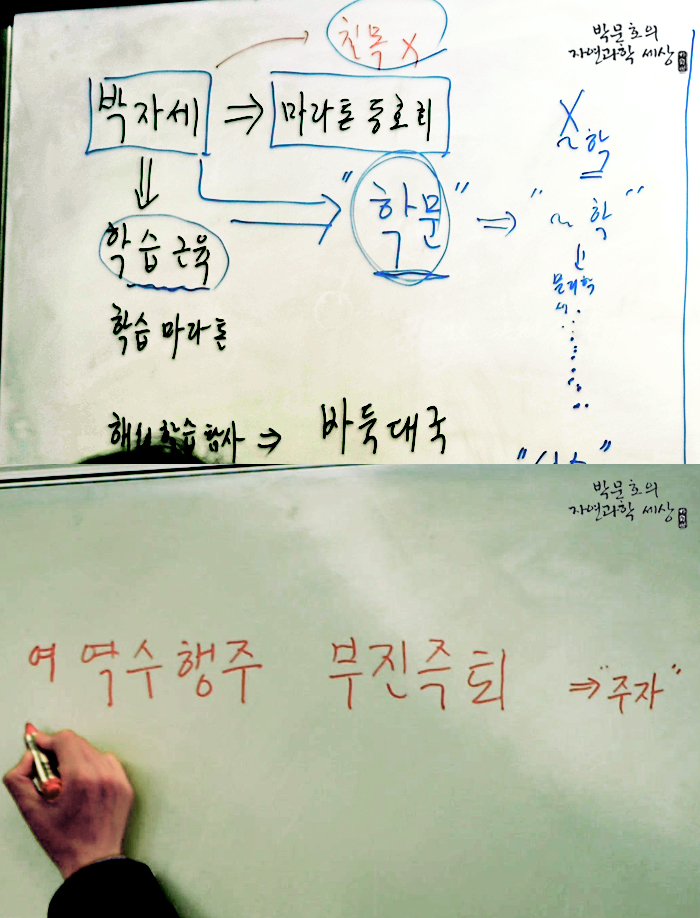 친목 X
박문호의
자연과학 세상
박자세 ⇒ 마라톤 동호회
X
~학
"학문" ⇒ "~학"
학습 근육
물리학
학습 마라톤
해외학습탐사 ⇒ 바둑대국
박문호의
자연과학 세상
여 역수행주 부진즉퇴 ⇒ "주자"